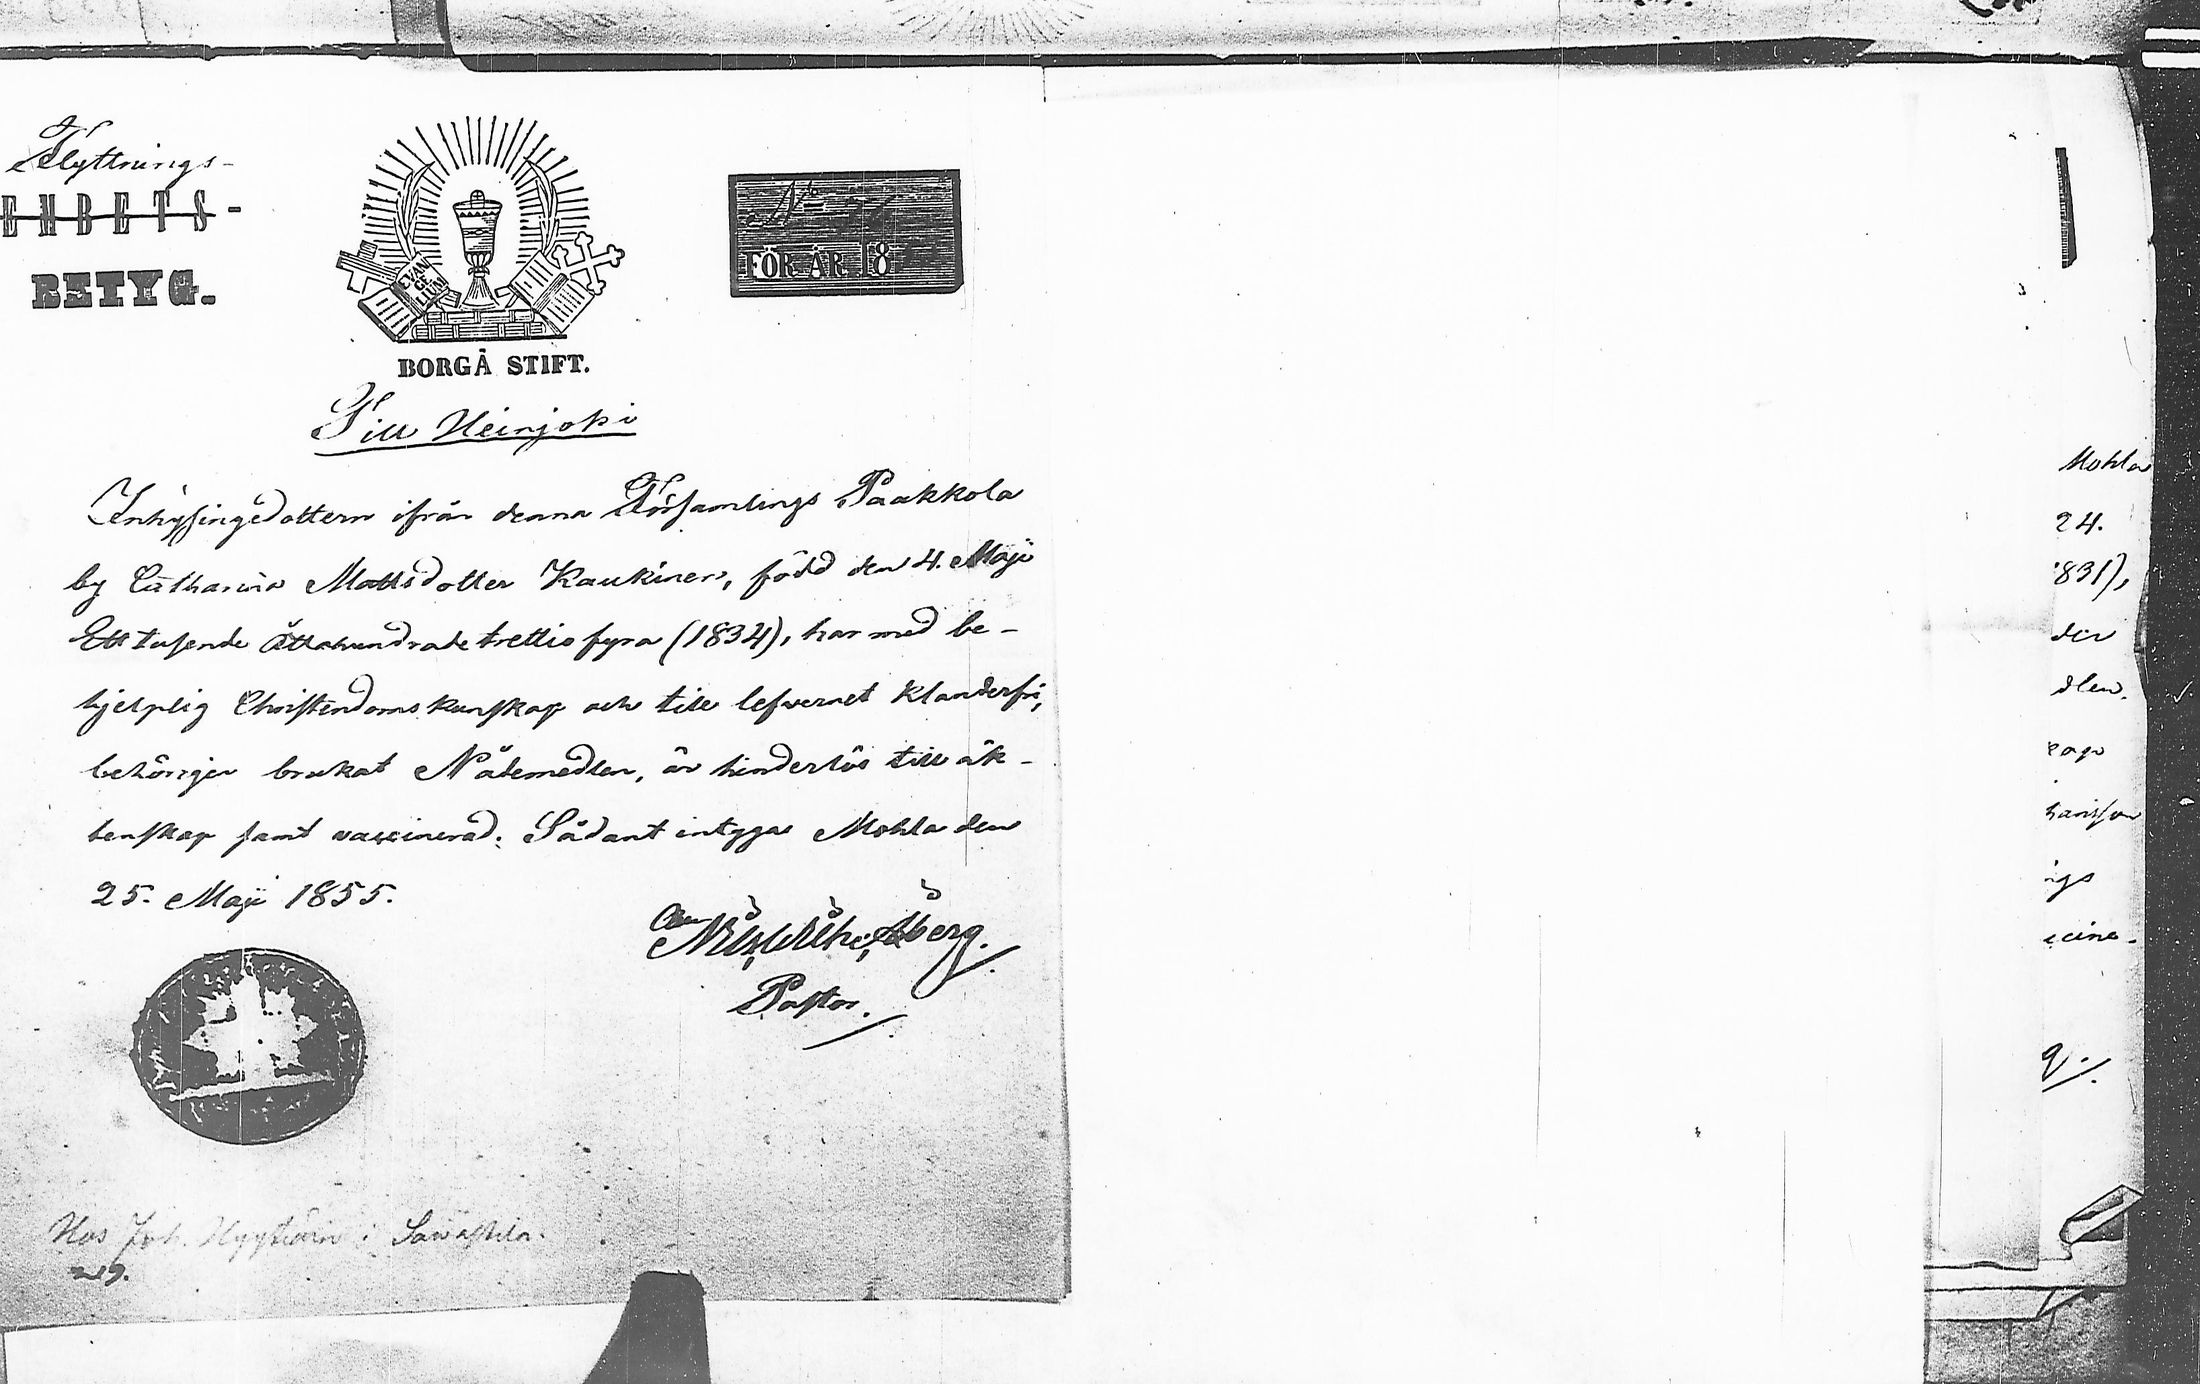 Flyttnings-
EMBETS-
BETYG.
EVAN
GE
LIUM
FÖR ÅR 18
BORGÅ STIFT.
Till Heinjoki
Inhysingedottern ifrån denna Församlings Paakkola
by Catharina Mattsdotter Kaukinen, född den 4. Maji
Ett tusende åttahundrade trettio fyra (1834), har med be-
hjelplig Christendoms kunskap och till lefvernet klanderfri,
behörigen brukat Nådemedlen, är hinderlös till äk-
tenskap samt vaccinerad. Sådant intygar Mohla den
25. Maji 1855.
Åberg.
Pastor.
Hos Joh. Hyytiäin i
219.
Mohla
24.
831),
der
dlen.
kap
hansson
ngs
ccine-
g.